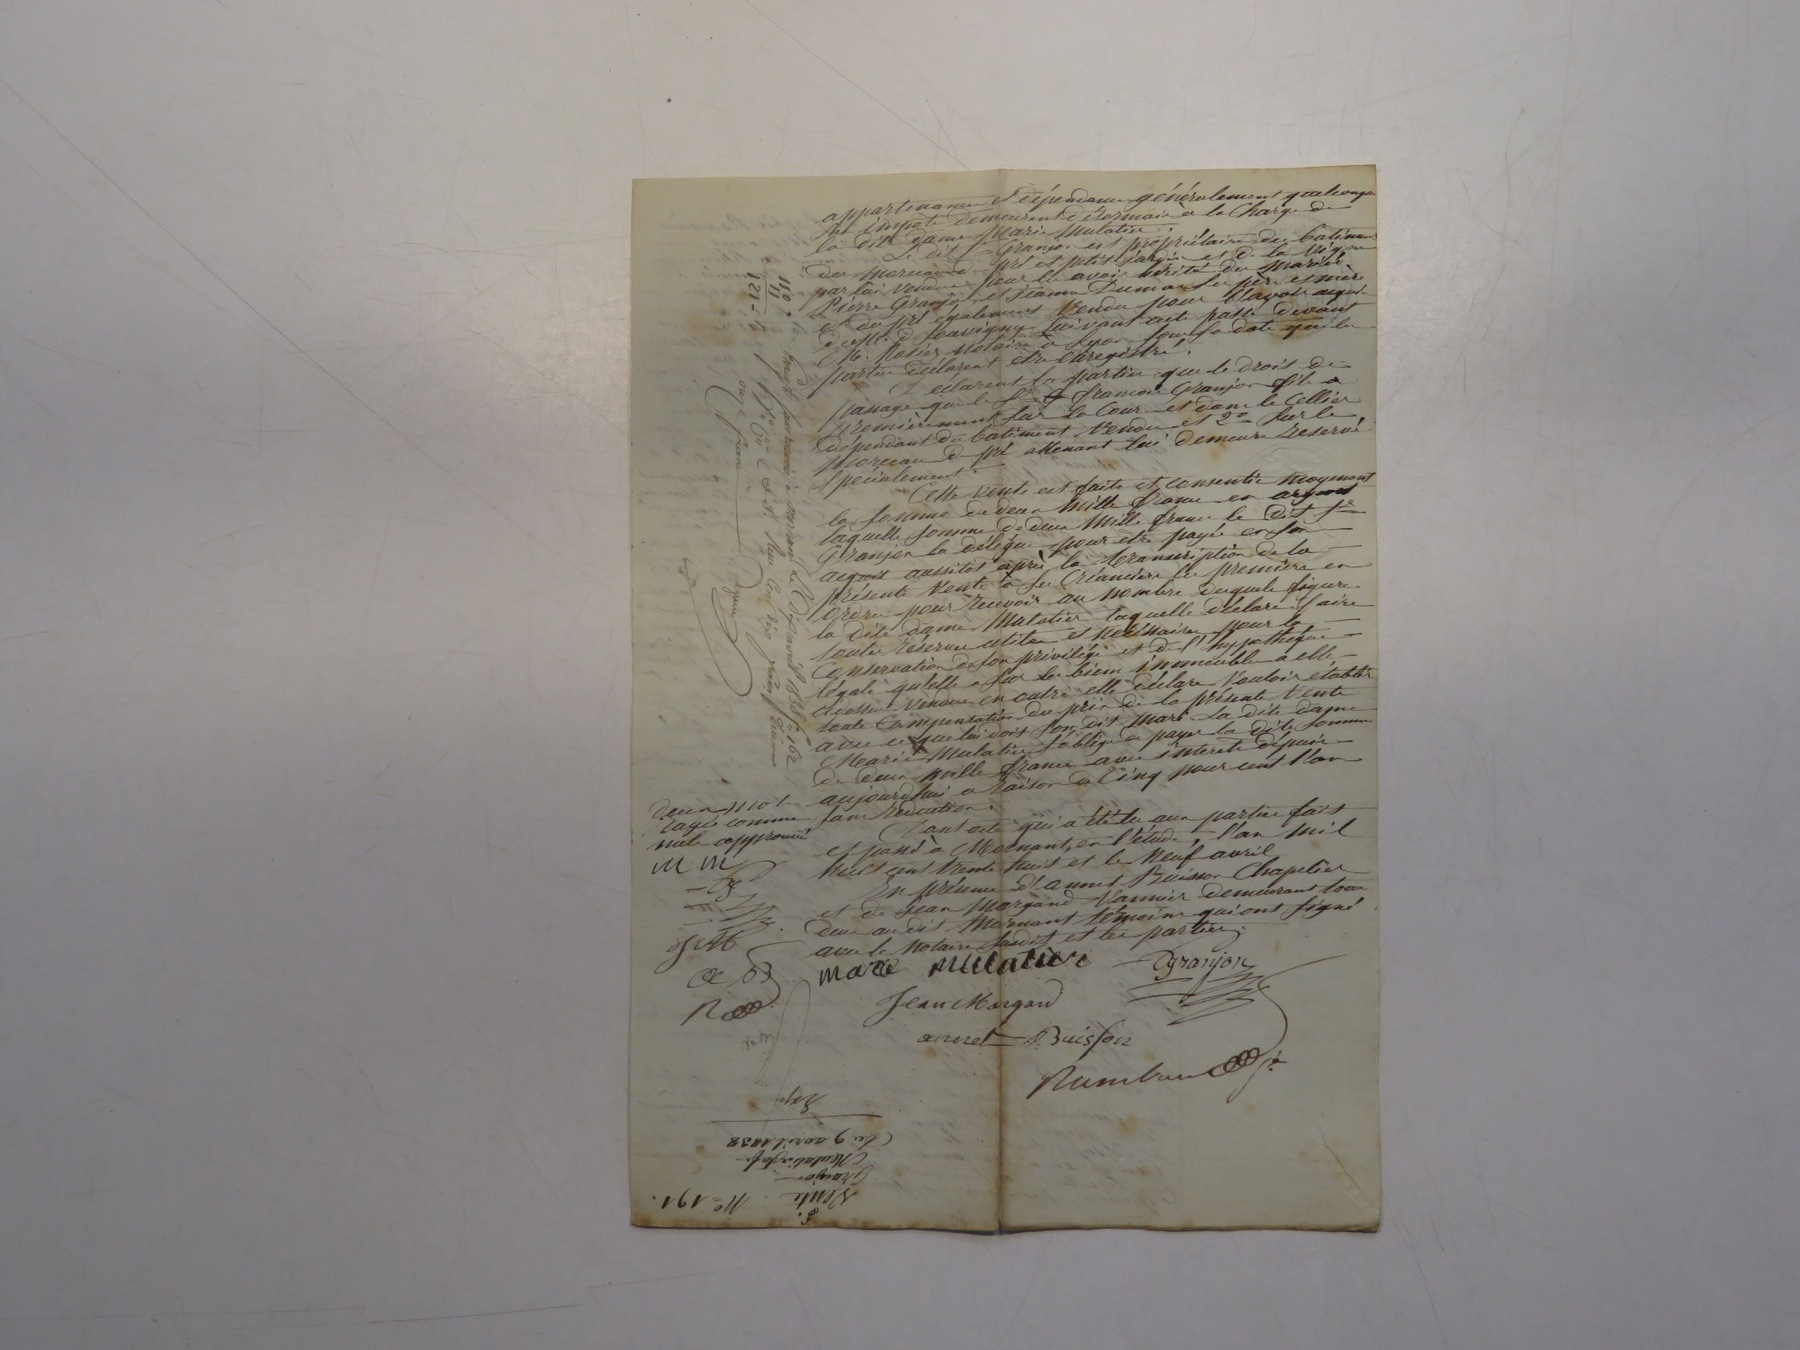 appartenances et dépendances généralement quelconques
les impôts demeurent désormais à la charge de
la dite dame Marie Mulatier.
Le dit sr Granjon est propriétaire des batiments
du morceau de pré et petit jardin et de la vigne
par lui vendus pour les avoir hérités des mariés
Pierre Granjon et Jeanne Dumas ses père et mère
et du pré également vendu pour l'avoir acquis
de Mr de Savigny suivant acte passé devant
Me Rosier notaire à Lyon sous sa date que les
parties déclarent etre enregistré.
Déclarent les parties que le droit de
passage que le Sr françois Granjon fils a
premièrement sur la Cour et dans le Cellier
dépendant du batiment vendu et 2° sur le
morceau de pré attenant lui demeure reservé
spécialement
Cette vente est faite et consentie moyennant
la somme de deux mille francs en argent
laquelle somme de deux mille francs le dit Sr
Granjon la délègue pour etre payée en son
acquit aussitot après la transcription de la
présente vente à ses Créanciers les premiers en
ordre pour recevoir au nombre desquels figure
la dite dame Mulatier laquelle déclare faire
toutes réserves utiles et nécéssaires pour la
Conservation de son privilége et de l'hypothèque
légale qu'elle a sur les biens immeubles à elle
cidessus vendus en outre elle déclare vouloir établir
toute Compensation du prix de la présente vente
avec ce que lui doit son dit mari la dite dame
Marie Mulatier s'oblige de payer la dite somme
de deux mille francs avec intérets depuis
aujourd'hui a raison de Cinq pour cent l'an
sans rétention.
Dont acte qui a été lu aux parties fait
et passé à Mornant, en l'étude, l'an mil
huit cent trente huit et le neuf avril
En présence d'annet Buisson Chapelier
et de Jean Margand Vannier demeurant tous
deux au dit Mornant témoins qui ont signé
avec le notaire susdit et les parties.
marie mulatier Granjon
Jean Margand
annet Buisson
deux mots
rayés comme
nuls approuvés
m m
J M
a B
110.
11
121-
onze francs
Vente N° 191.
Granjon
Mulatier sa fe
Du 9 avril 1838
Exp